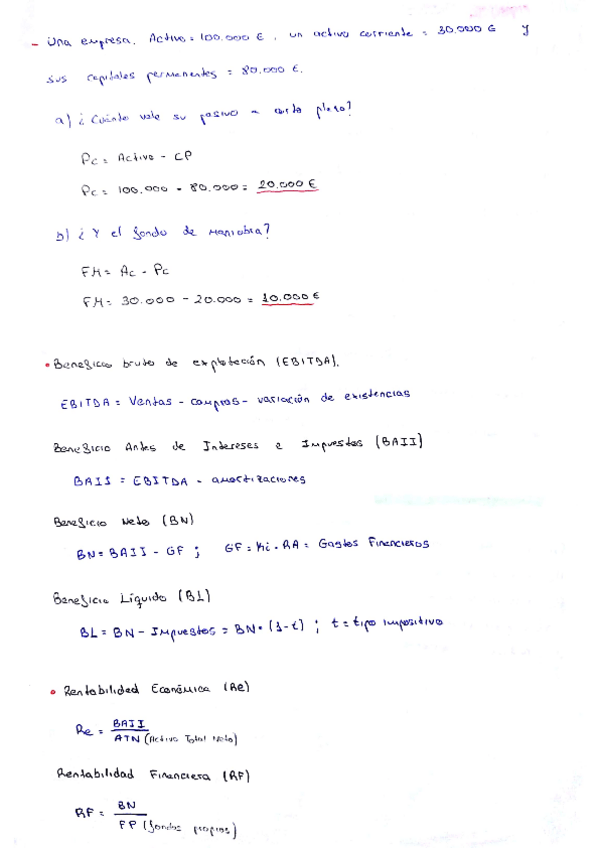 - Una empresa. Activo = 100.000 €, un activo corriente = 30.000 € y
sus capitales permanentes = 80.000 €.
a) ¿Cuánto vale su pasivo a corto plazo?
Pc = Activo - CP
Pc = 100.000 - 80.000 = 20.000 €
b) ¿Y el fondo de maniobra?
FM = Ac - Pc
FM = 30.000 - 20.000 = 10.000 €
• Beneficio bruto de explotación (EBITDA).
EBITDA = Ventas - compras - variación de existencias
Beneficio Antes de Intereses e Impuestos (BAII)
BAII = EBITDA - amortizaciones
Beneficio Neto (BN)
BN = BAII - GF ; GF = Ki · RA = Gastos Financieros
Beneficio Líquido (BL)
BL = BN - Impuestos = BN · (1-t) ; t = tipo impositivo
• Rentabilidad Económica (Re)
Re = BAII
ATN (Activo Total Neto)
Rentabilidad Financiera (RF)
RF = BN
FP (fondos propios)